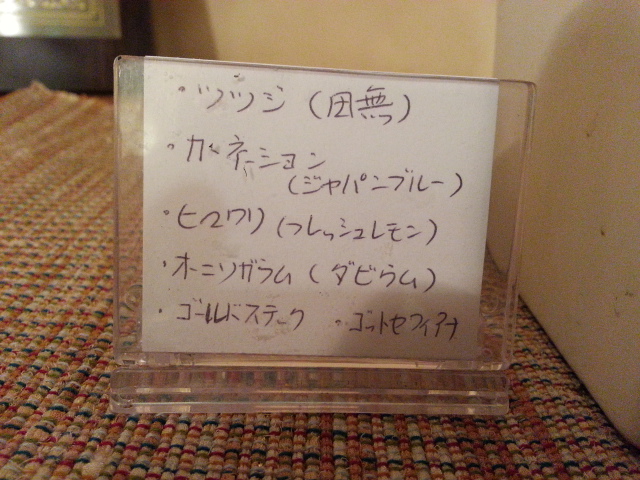 ・ツツジ(因無)
・カーネーション
(ジャパンブルー)
・ヒマワリ(フレッシュレモン)
・オーニソガラム(ダビウム)
・ゴールドステック ・ゴットセフィアナ